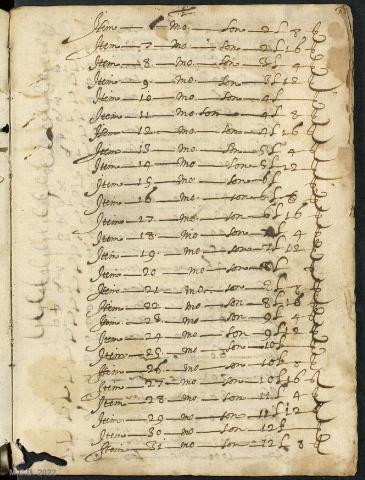 Item — mo. — son — 2 L 8 ẞ
Item — 7 — mo — son — 2 L 16 ẞ
Item — 8 — mo — son — 3 L 4 ẞ
Item — 9 — mo — son — 3 L 12 ẞ
Item — 10 — mo — son — 4 L ẞ
Item — 11 — mo — son — 4 L 8 ẞ
Item — 12 — mo — son — 4 L 16 ẞ
Item — 13 — mo — son — 5 L 4 ẞ
Item — 14 — mo — son — 5 L 12 ẞ
Item — 15 — mo — son — 6 L ẞ
Item — 16 — mo — son — 6 L 8 ẞ
Item — 17 — mo — son — 6 L 16 ẞ
Item — 18 — mo — son — 7 L 4 ẞ
Item — 19 — mo — son — 7 L 12 ẞ
Item — 20 — mo — son — 8 L ẞ
Item — 21 — mo — son — 8 L 8 ẞ
Item — 22 — mo — son — 8 L 16 ẞ
Item — 23 — mo — son — 9 L 4 ẞ
Item — 24 — mo — son — 9 L 12 ẞ
Item — 25 — mo — son — 10 L ẞ
Item — 26 — mo — son — 10 L 8 ẞ
Item — 27 — mo — son — 10 L 16 ẞ
Item — 28 — mo — son — 11 L 4 ẞ
Item — 29 — mo — son — 11 L 12 ẞ
Item — 30 — mo — son — 12 L ẞ
Item — 31 — mo — son — 12 L 8 ẞ